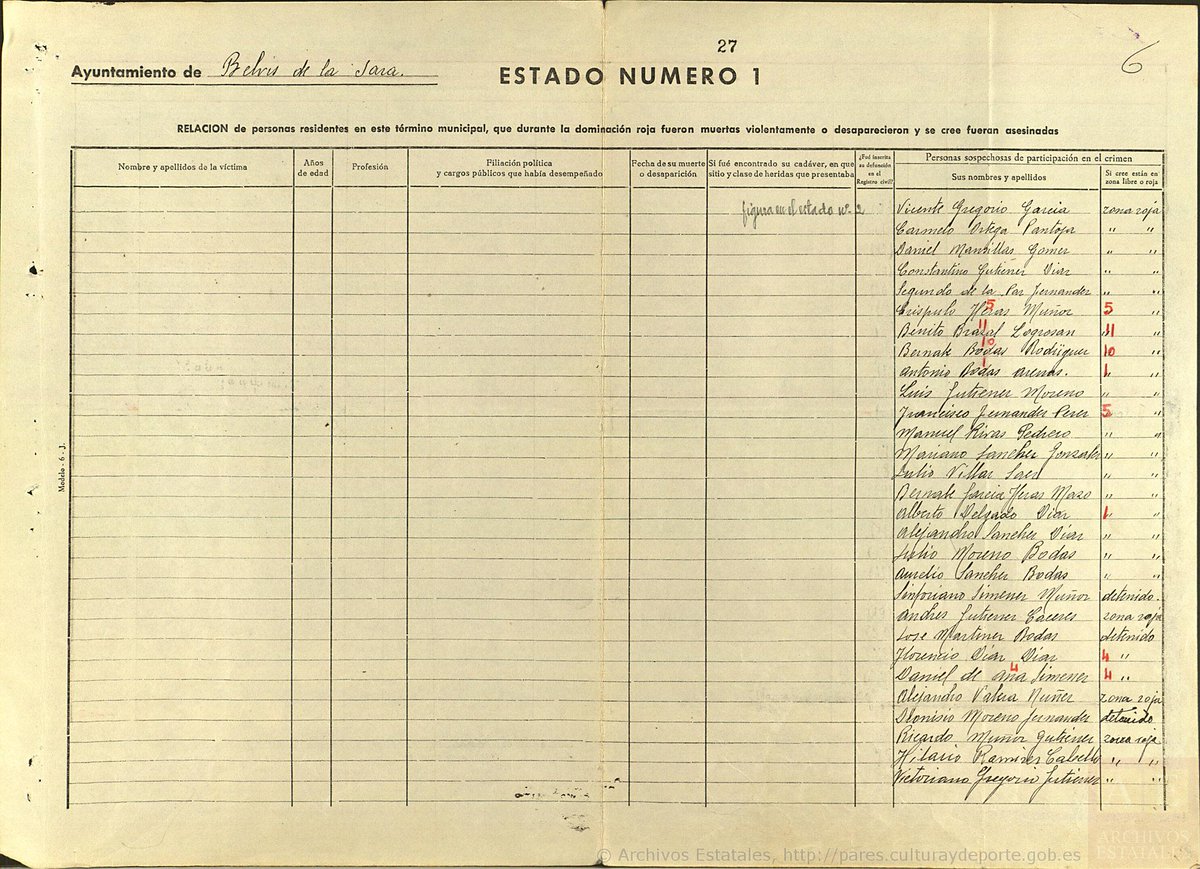 27
6
Ayuntamiento de Belvis de la Jara.
ESTADO NUMERO 1
RELACION de personas residentes en este término municipal, que durante la dominación roja fueron muertas violentamente o desaparecieron y se cree fueran asesinadas
Nombre y apellidos de la víctima
Años de edad
Profesión
Filiación política y cargos públicos que había desempeñado
Fecha de su muerte o desaparición
Si fué encontrado su cadáver, en que sitio y clase de heridas que presentaba
¿Fué inscrita su defunción en el Registro civil?
Personas sospechosas de participación en el crimen
Sus nombres y apellidos
Si cree están en zona libre o roja
figura en el estado nº 2
Vicente Gregorio Garcia zona roja
Carmelo Ortega Pantoja " "
Daniel Mansillas Gomez " "
Constantino Gutiérrez Diaz " "
Segundo de la Paz Fernandez " "
Crispulo Heras Muñoz 5 "
5
Benito Brasal Logrosan 11 "
11
Bernabé Bodas Rodriguez 10 "
10
Antonio Bodas Arenas. 1 "
1
Luis Gutierrez Moreno " "
Francisco Fernandez Perez 5 "
Manuel Rivas Pedrero " "
Mariano Sanchez Gonzalez " "
Julio Villar Saez " "
Bernabé Garcia Heras Mazo " "
Alberto Delgado Diaz 1 "
Alejandro Sanchez Diaz " "
Julio Moreno Bodas " "
Aurelio Sanchez Bodas " "
Sinforiano Jimenez Muñoz detenido.
Andres Gutierrez Caceres zona roja
Jose Martinez Bodas detenido
Florencio Diaz Diaz 4 "
Daniel de Ana Jimenez 4 "
4
Alejandro Valera Nuñez zona roja
Dionisio Moreno Fernandez detenido
Ricardo Muñoz Gutierrez zona roja
Hilario Ramirez Cabello " "
Victoriano Gregorio Gutierrez " "
Modelo - 6 - J.
ARCHIVOS ESTATALES
© Archivos Estatales, http://pares.culturaydeporte.gob.es